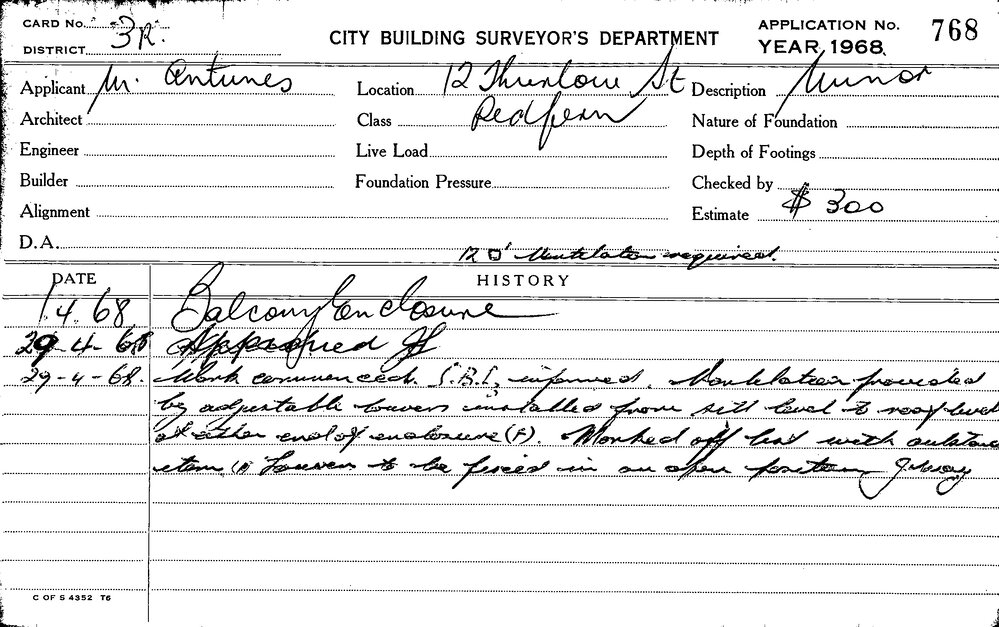 CARD No. 3R.
DISTRICT
CITY BUILDING SURVEYOR'S DEPARTMENT
APPLICATION No. 768
YEAR 1968.
Applicant M. Antunes Location 12 Thurlow St Description Minor
Architect Class Redfern Nature of Foundation
Engineer Live Load Depth of Footings
Builder Foundation Pressure Checked by
Alignment Estimate $300
D.A. 12 □' Ventilation required.
DATE HISTORY
1.4.68 Balcony Enclosure
29-4-68 Approved
29-4-68. Work commenced. S.B.I. informed. Ventilation provided
by adjustable louvers installed from sill level to roof level
at either end of enclosure (F). Marked off list with
item (1) Louvers to be fixed in an open position
C OF S 4352 T6